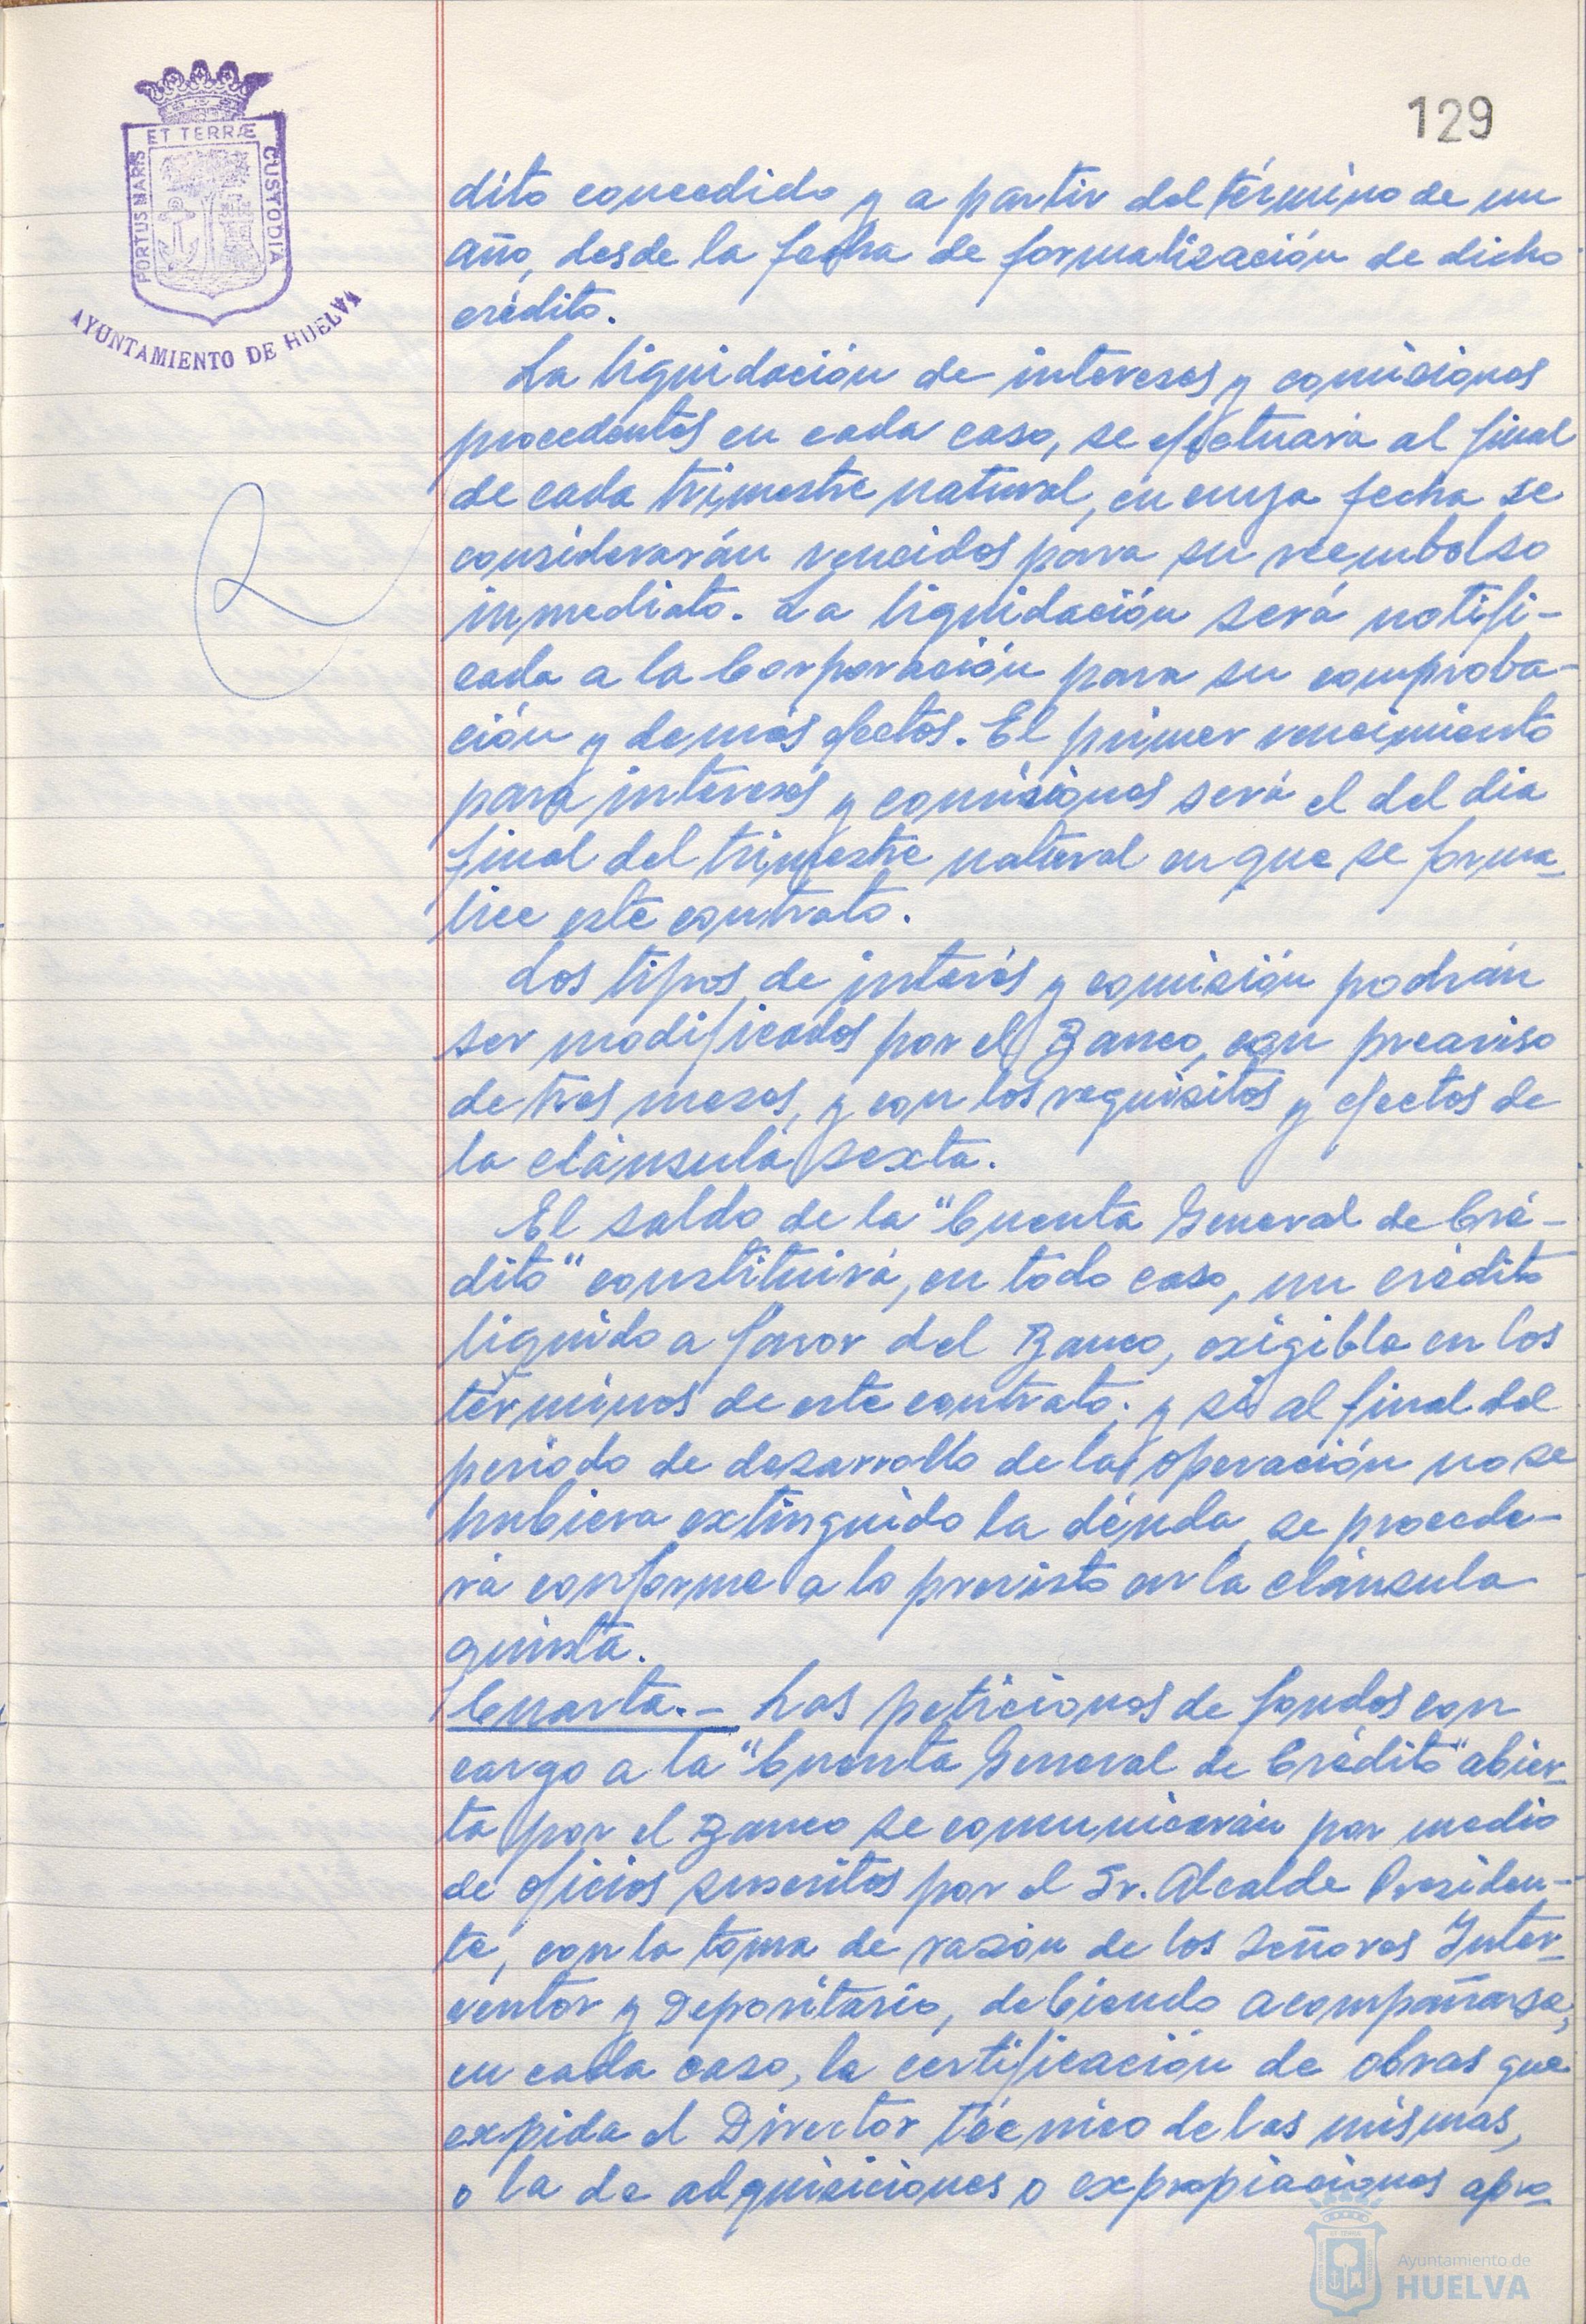 129
PORTUS MARIS ET TERRÆ CUSTODIA
AYUNTAMIENTO DE HUELVA
dito concedido y a partir del término de un
año, desde la fecha de formalización de dicho
crédito.
La liquidación de intereses y comisiones
procedentes en cada caso, se efectuará al final
de cada trimestre natural, en cuya fecha se
considerarán vencidos para su reembolso
inmediato. La liquidación será notifi-
cada a la Corporación para su comproba-
ción y demás efectos. El primer vencimiento
para intereses y comisiones será el del dia
final del trimestre natural en que se forma-
lice este contrato.
Los tipos de interés y comisión podrán
ser modificados por el Banco, con preaviso
de tres meses, y con los requisitos y efectos de
la cláusula sexta.
El saldo de la "Cuenta General de Cré-
dito" constituirá, en todo caso, un crédito
liquido a favor del Banco, exigible en los
términos de este contrato; y si al final del
periodo de desarrollo de la operación no se
hubiera extinguido la déuda, se procede-
rá conforme a lo previsto en la cláusula
quinta.
Cuarta.- Las peticiones de fondos con
cargo a la "Cuenta General de Crédito" abier-
ta por el Banco se comunicarán por medio
de oficios suscritos por el Sr. Alcalde Presiden-
te, con la toma de razón de los Señores Inter-
ventor y Depositario, debiendo acompañarse,
en cada caso, la certificación de obras que
expida el Director técnico de las mismas,
o la de adquisiciones o expropiaciones apro-
Ayuntamiento de
HUELVA